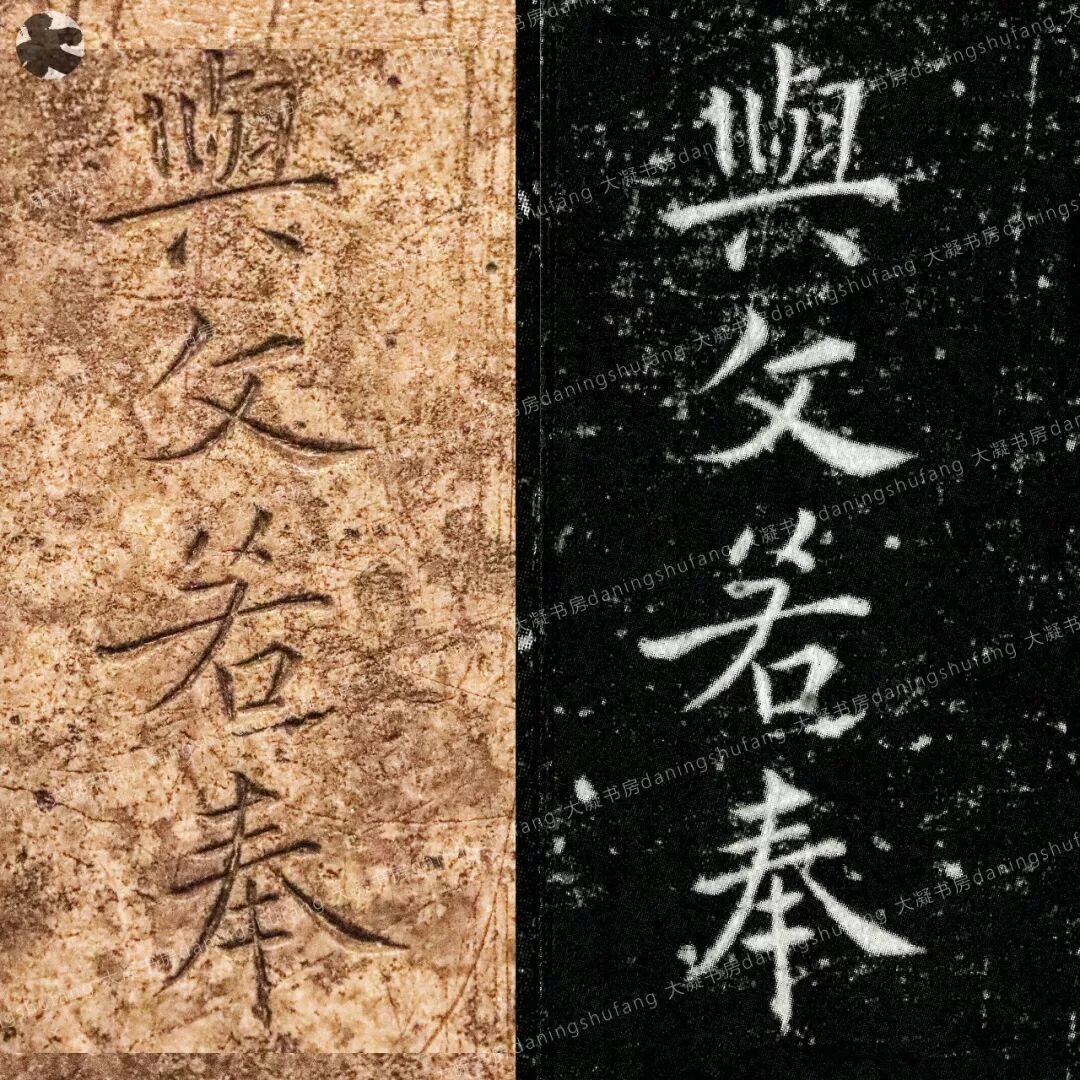 與
文
若
奉
大凝书房daningshufang